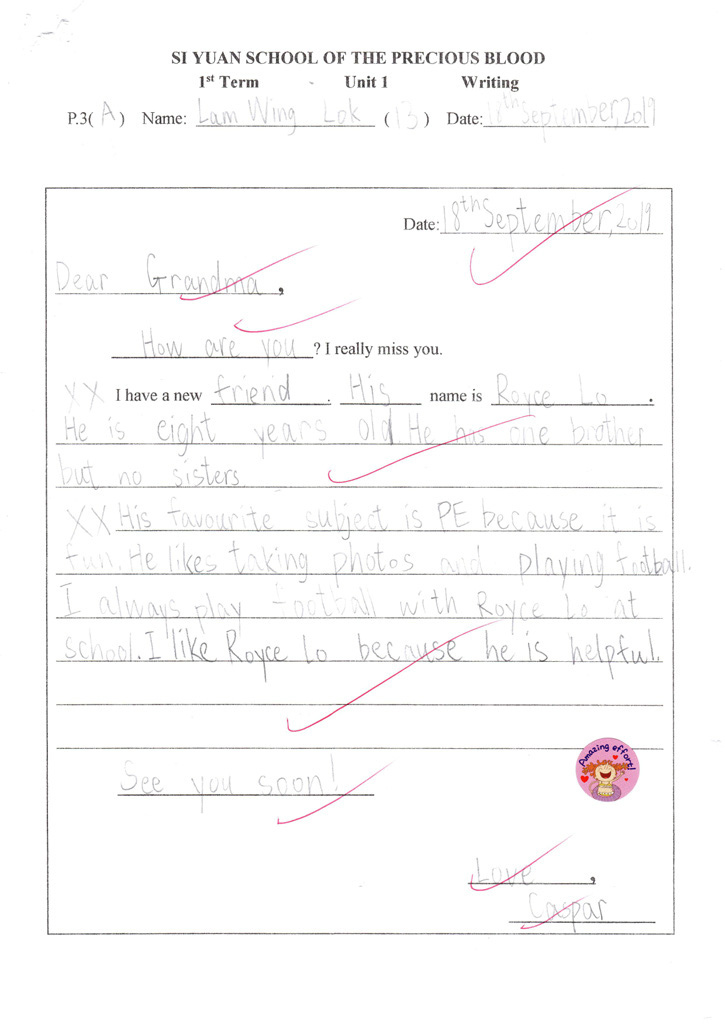 SI YUAN SCHOOL OF THE PRECIOUS BLOOD
1st Term - Unit 1 Writing
P.3( A ) Name: Lam Wing Lok ( 13 ) Date: 18th September, 2019
Date: 18th September, 2019
Dear Grandma ,
How are you ? I really miss you.
XX I have a new friend . His name is Royce Lo .
He is eight years old He has one brother
but no sisters
XX His favourite subject is PE because it is
fun. He likes taking photos and playing football.
I always play football with Royce Lo at
school. I like Royce Lo because he is helpful.
Amazing effort!
See you soon!
Love ,
Caspar